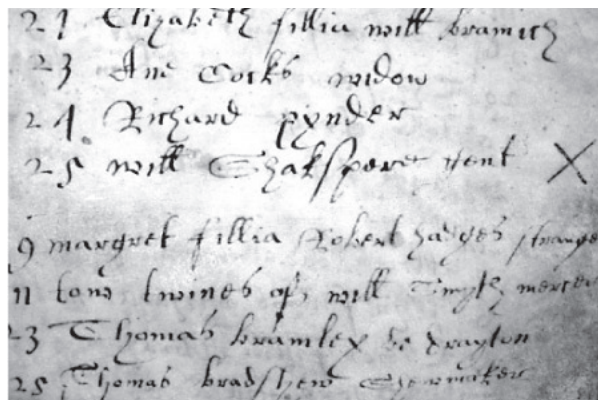 21 Elizabeth fillia will bramich
23 Ane Cocks widow
24 Richard pynder
25 will Shakspere gent X
9 margret fillia Robert strange
11 tow twines of will Smyth mercer
23 Thomas bramley de drayton
25 Thomas bradshew Shewmaker